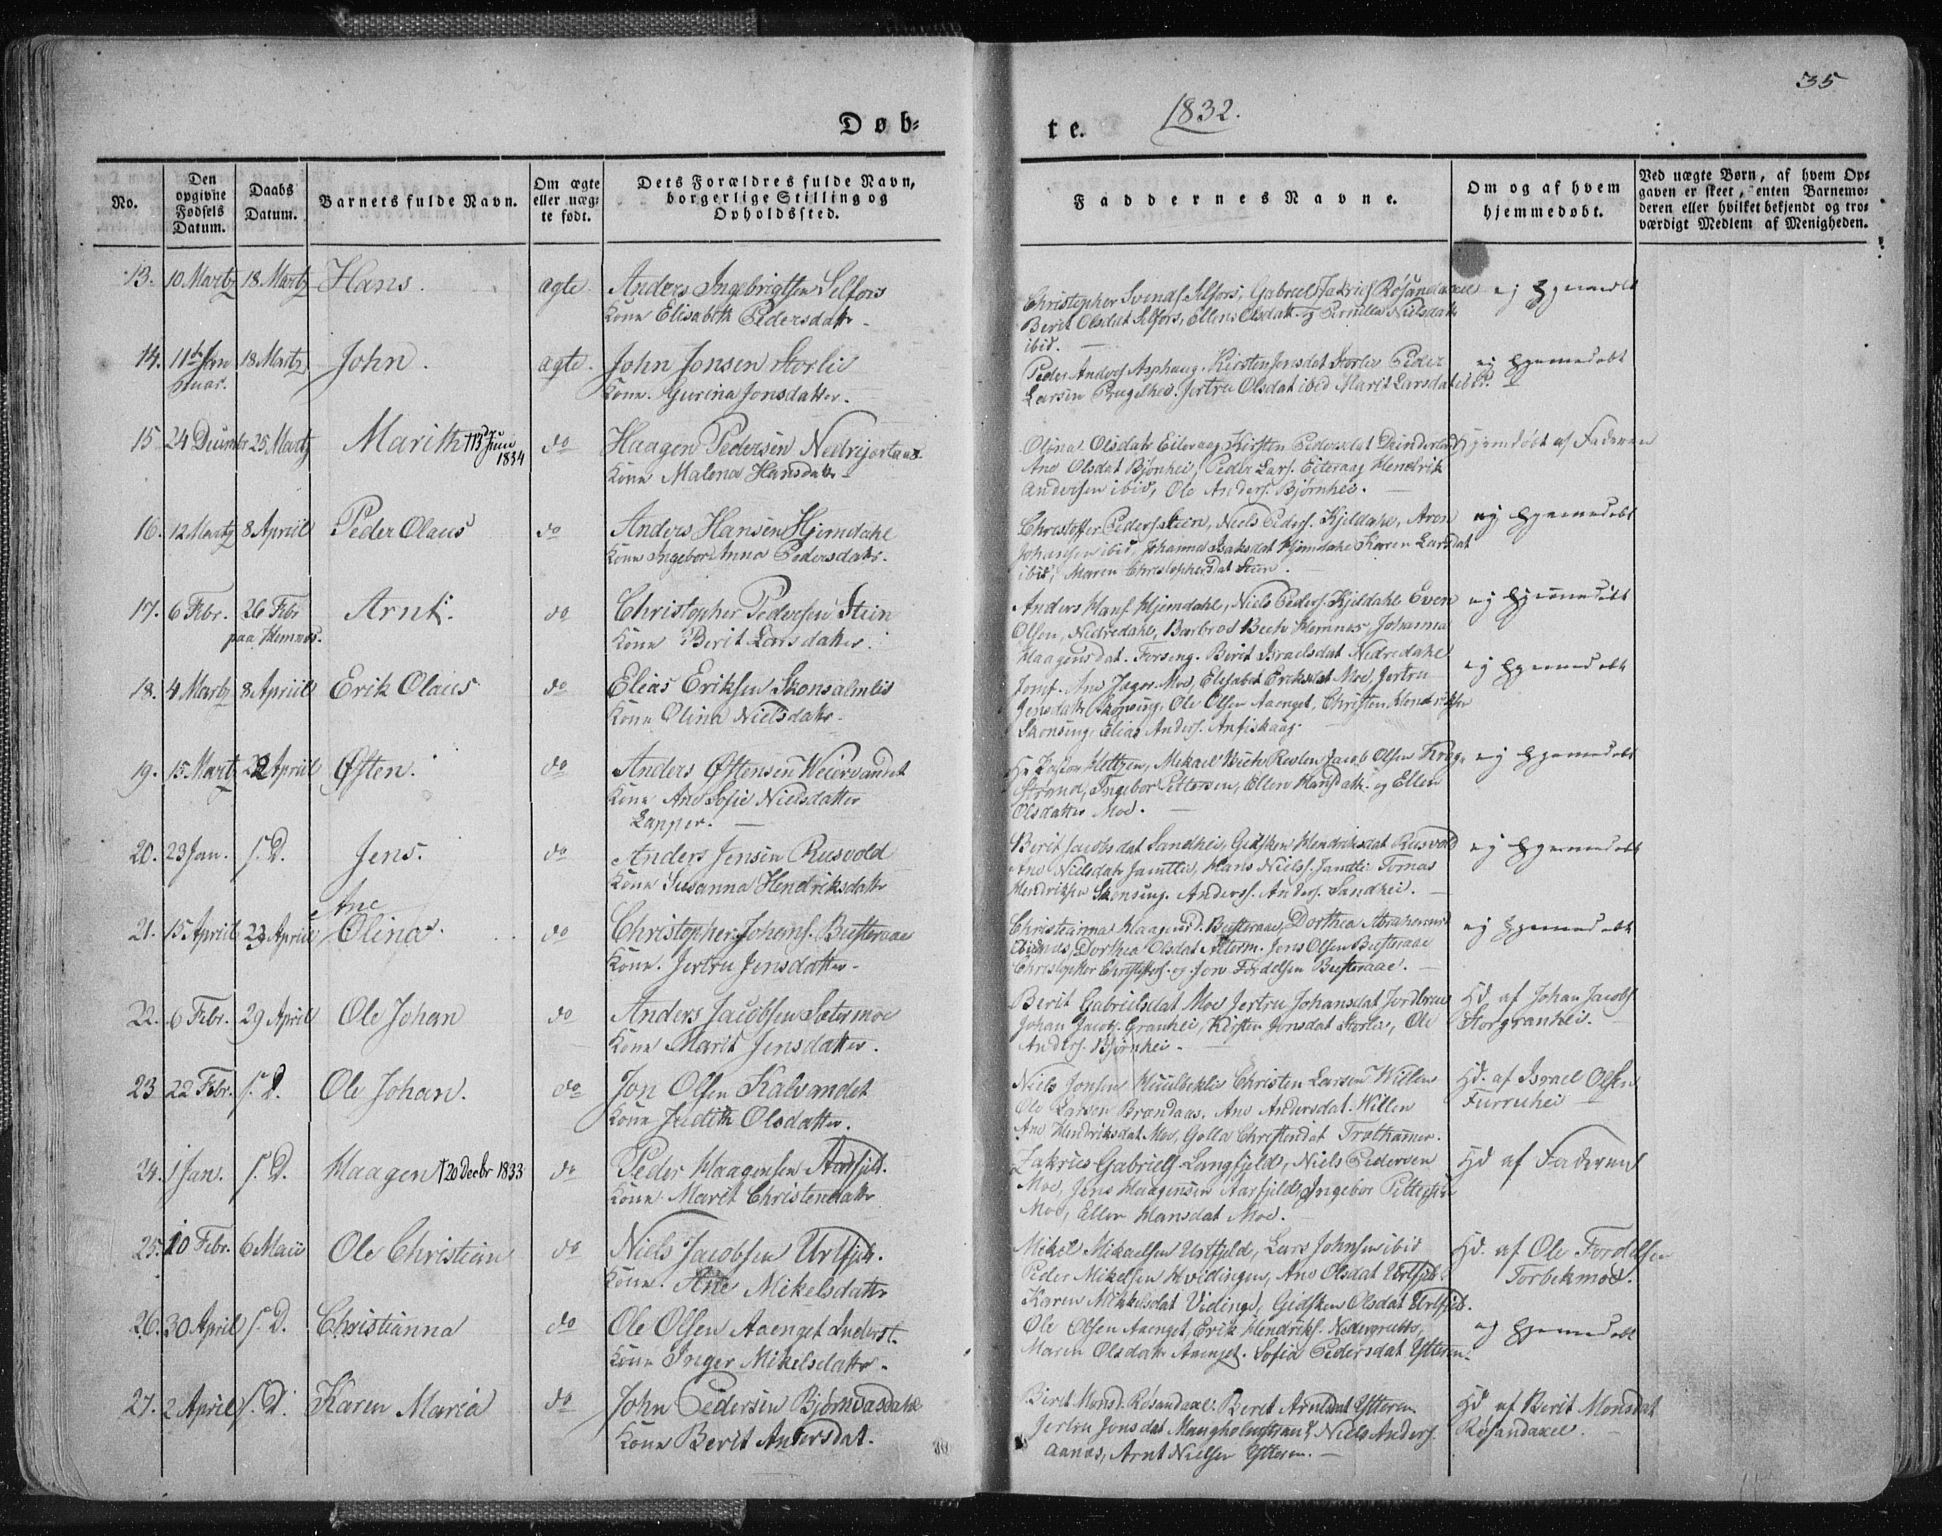 35
1832.
Døb-
te.
No.
Den opgivne Fødsels Datum.
Daabs Datum.
Barnets fulde Navn.
Om ægte eller uæg-
te født.
Dets Forældres fulde Navn,
borgerlige Stilling og
Opholdssted.
Faddernes Navne.
Om og af hvem
hjemmedøbt.
Ved uægte Børn, af hvem Op-
gaven er skeet, enten Barnemo-
deren eller hvilket bekjendt og tro-
værdigt Medlem af Menigheden.
13. 10 Martz 18 Martz Hans. ægte. Anders Ingebrigtsen Selfors
Kone Elisabeth Pedersdatr.
Christopher Svends. Selfors, Gabriel Zakrias. Røsandaxel
Berit Olsdat Selfors, Ellen Olsdatt. og Pernilla Nielsdatr
ibid.
ej hjemedøbt
14. 11te Jan
nuar. 18 Martz John. ægte. John Jonsen Storlie
Kone. Gurina Jonsdatter.
Peder Anders. Asphaug. Kirsten Jonsdat Storlie Peder
Larsen Prugelhei. Jertru Olsdat ibid Marit Larsdat ibid.
ej hjemedøbt
15 24 Decembr 25 Martz Marith † 13 Juni
1834 do Haagen Pedersen Nedrejertaas
Kone Malena Hansdatr
Olina Olsdatr Eiteraag, Kirsten Pedersdat
Ane Olsdat Bjørnhei, Peder Lars. Eiteraag Hendrik
Andersen ibid, Ole Anders. Bjørnhei.
Hjemdøbt af Faderen
16. 12 Martz 8 Apriil Peder Olaus do Anders Hansen Hjemdahl
Kone Ingebor Anna Pedersdatr.
Christoffer Peders. Stein, Niels Peders. Kjeldahl, Aron
Johansen ibid, Johanna Isaksdat Hjemdahl Karen Larsdat
ibid, Maren Christophersdat Stein.
ej hjemedøbt
17. 6 Febr. 26 Febr
paa Hemnes. Arnt. do Christopher Pedersen Stein
Kone Berit Larsdatter.
Anders Hans. Hjemdahl, Niels Peders. Kjeldahl Even
Olsen, Nedredahl, Barbro Bech Hemnes Johanna
Haagensdat. Forseng. Berit Israelsdat Nedredahl
ej hjemedøbt
18. 4 Martz 8 Apriil Erik Olaus do Elias Eriksen Skonsalmlis
Kone Olina Nielsdatr.
Jomf. Ane Jager Moe, Elisabet Eriksdat Moe, Jertru
Jensdatr Skonsing, Ole Olsen Aaenget, Christen Hendriksen
Skonsing, Elias Anders.
ej hjemedøbt
19. 15 Martz 22 Apriil Østen. do Anders Østensen Weiervandet
Kone Ane Sofie Nielsdatter
Lapper.
Hr Pastor Heltzen, Mikael Bech Jacob Olsen Krog-
strand, Ingebor Pettersen, Ellen Hansdatr. og Ellen
Olsdatter Moe.
ej hjemedøbt
20. 23 Jan. s. D. Jens. do Anders Jensen Rusvold
Kone Susanna Hendriksdatr
Berit Jacobsdat Sandhei, Gidsken Hendriksdat Rusvold
Ane Nielsdatr Jamtlie, Hans Niels. Jamtlie Tomas
Hendriksen Skonsing. Anders. Anders. Sandhei.
ej hjemedøbt
21. 15 Apriil 23 Apriil Ane
Olina. do Christopher Johans. Busteraae
Kone. Jertru Jensdatter.
Christianna Haagensd. Busteraae, Dorthea Abrahamsd
Dorthea Olsdat Alterm. Jens Olsen Busteraae
Christopher Christofs. og Jon Fordelsen Busteraae.
ej hjemedøbt
22. 6 Febr. 29 April Ole Johan do Anders Jacobsen Setermoe
Kone Marit Jensdatter.
Berit Gabrielsdat Moe Jertru Johansdat Jordbrue
Johan Jacobs. Granhei, Kirsten Jonsdat Storlie, Ole
Anders. Bjørnhei.
Hd af Johan Jacobs.
Storgranhei.
23 22 Febr. s. D. Ole Johan. do Jon Olsen Kalvandet
Kone Judith Olsdatter.
Niels Jonsen Christen Larsen Willen
Ole Larsen Brandaas, Ane Andersdat. Willen
Ane Hendriksdat Moe, Golla Christensdat Trolhamer.
Hd. af Israel Olsen
Furruhei
24. 1 Jan. s. D. Haagen † 20 Decbr 1833 do Peder Haagensen Aarfjeld.
Kone Marit Christensdatr
Zakrias Gabriels. Langfjeld, Niels Pedersen
Moe, Jens Haagensen Aarfjeld, Ingebor Pettersen
Moe, Ellen Hansdat Moe.
Hd af Faderen
25. 10 Febr. 6 Maii Ole Christian do Niels Jacobsen Urtfjeld.
Kone. Ane Mikelsdatr
Mikel Mikaelsen Urtfjeld, Lars Johnsen ibid
Peder Mikelsen Hvidingen, Ane Olsdat Urtfjeld.
Karen Mikkelsdat Vidinge, Gidsken Olsdat Urtfjeld.
Hd. af Ole Fordelsen
Torbekmoe.
26. 30 April s. D. Christianna do Ole Olsen Aaenget Inderst.
Kone Inger Mikelsdatr.
Ole Olsen Aaenget, Erik Hendriks. Nedergrubb,
Maren Olsdatr Aaenget. Sofia Pedersdat Ytteren.
ej hjemedøbt
27. 2 April s. D. Karen Maria do John Pedersen Bjørnaasdahl
Kone Berit Andersdat.
Berit Monsd. Røsandaxel. Beret Arntdat Ytteren
Jertru Jonsdat Mangholmstrand, Niels Anders.
aanæs, Arnt Nielsen Ytteren.
Hd af Berit Monsdat
Røsandaxel.